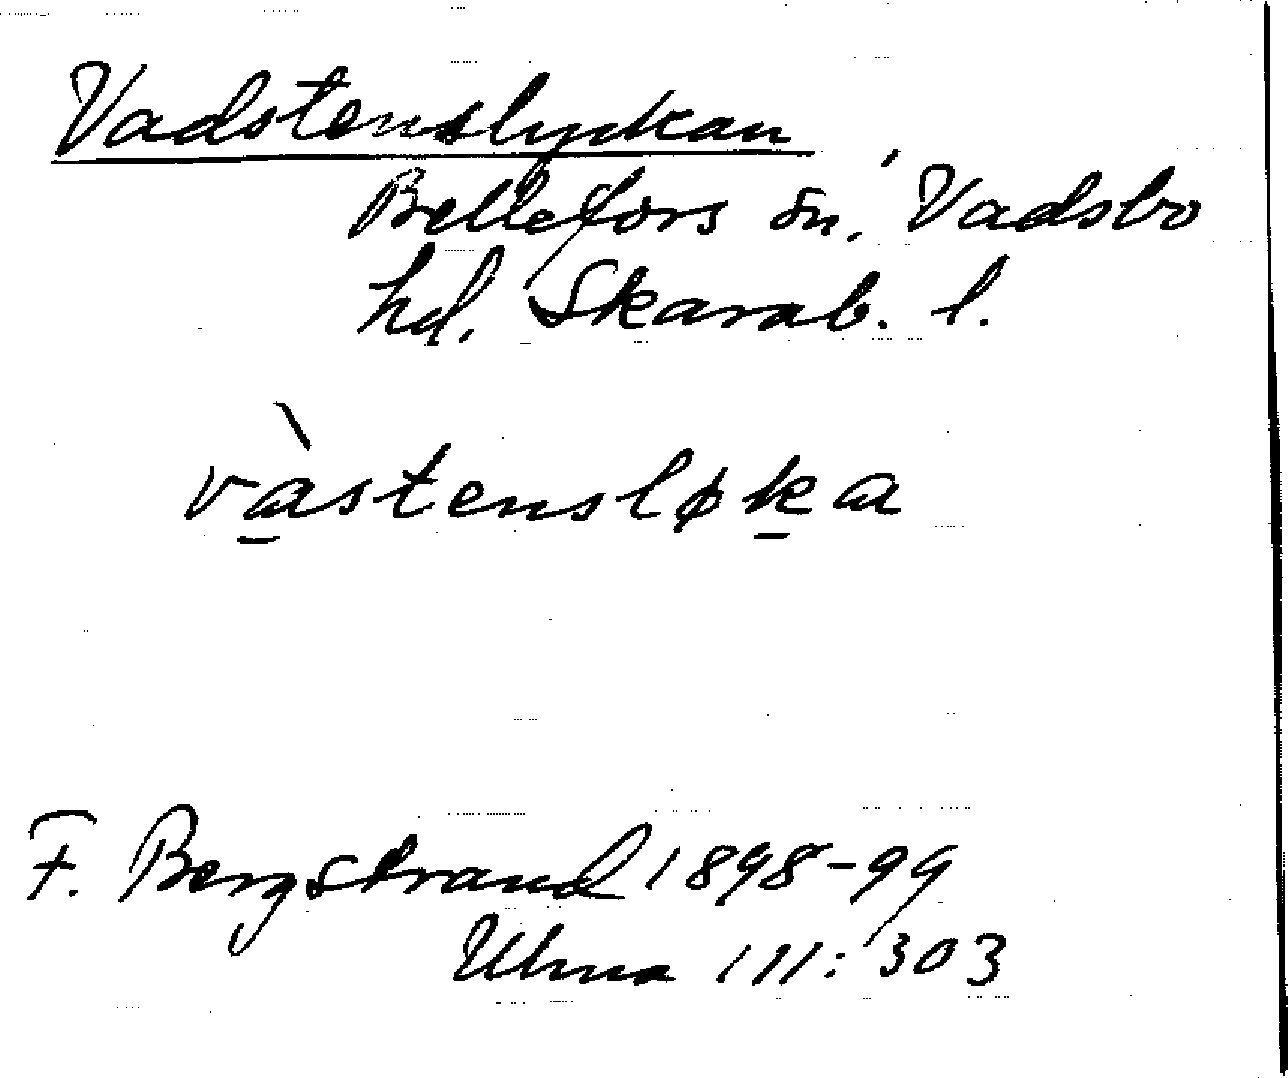 Vadstenslyckan
Bellefors sn, Vadsbo
hd. Skarab. l.
và̠stensløk̠a
F. Bergstrand 1898-99
Ulma 111:303